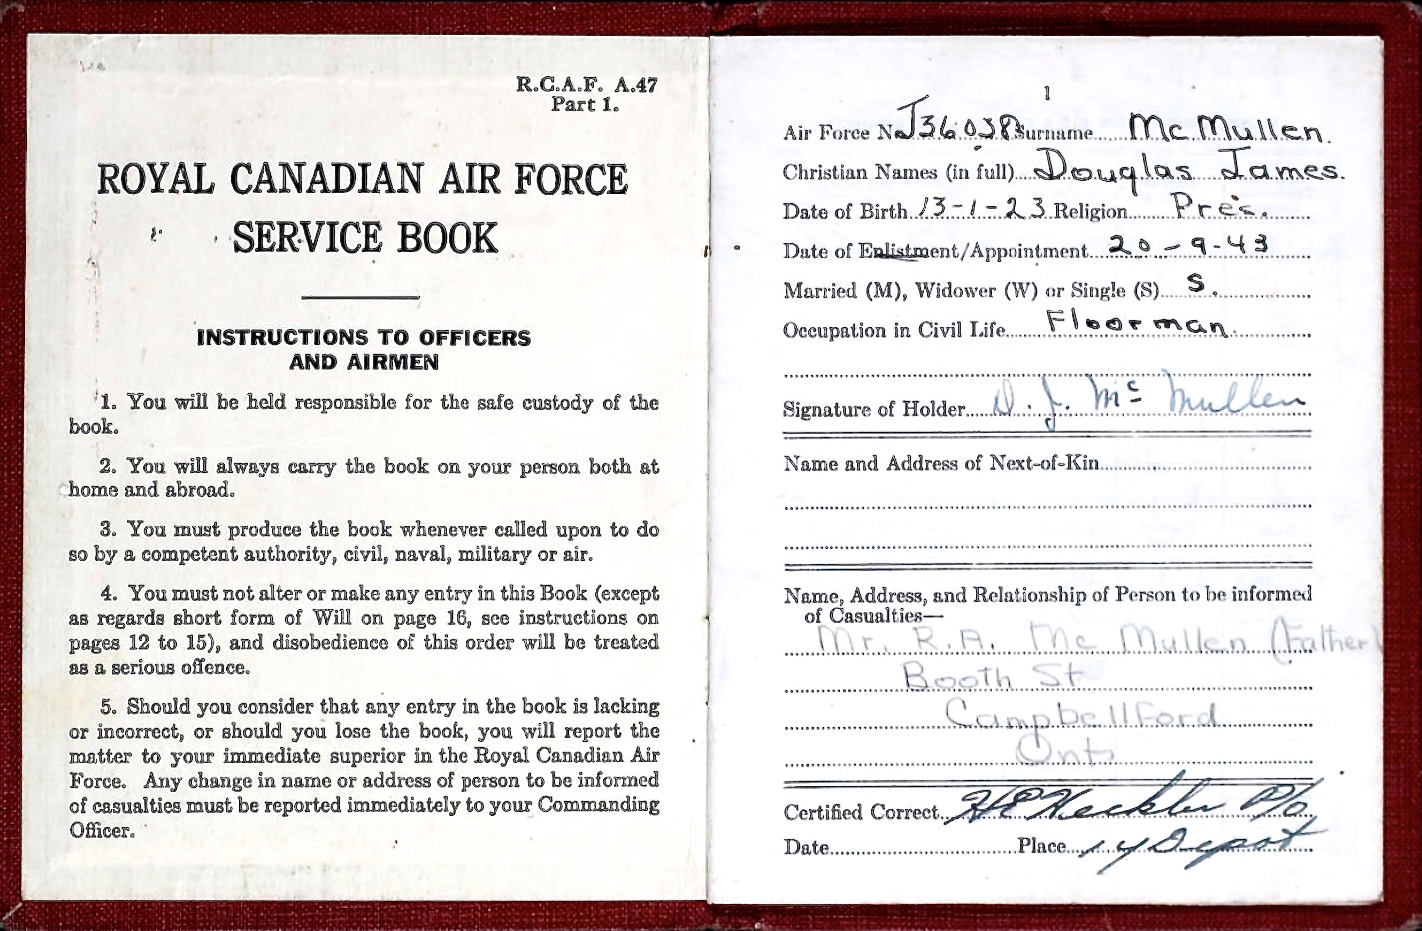 R.C.A.F. A.47
Part 1.
ROYAL CANADIAN AIR FORCE
SERVICE BOOK
INSTRUCTIONS TO OFFICERS
AND AIRMEN
1. You will be held responsible for the safe custody of the
book.
2. You will always carry the book on your person both at
home and abroad.
3. You must produce the book whenever called upon to do
so by a competent authority, civil, naval, military or air.
4. You must not alter or make any entry in this Book (except
as regards short form of Will on page 16, see instructions on
pages 12 to 15), and disobedience of this order will be treated
as a serious offence.
5. Should you consider that any entry in the book is lacking
or incorrect, or should you lose the book, you will report the
matter to your immediate superior in the Royal Canadian Air
Force. Any change in name or address of person to be informed
of casualties must be reported immediately to your Commanding
Officer.
1
Air Force No J36038 Surname Mc Mullen.
Christian Names (in full) Douglas James.
Date of Birth 13-1-23 Religion Pres.
Date of Enlistment/Appointment 20-9-43
Married (M), Widower (W) or Single (S) S.
Occupation in Civil Life Floorman.
Signature of Holder D. J. Mc Mullen
Name and Address of Next-of-Kin
Name, Address, and Relationship of Person to be informed
of Casualties—
Mr. R.A. Mc Mullen (Father)
Booth St
Campbellford
Ont
Certified Correct P/O
Date Place 1 Y Depot